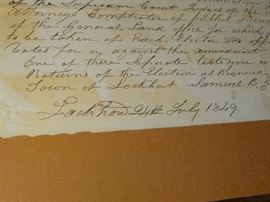 of the Supream Court appeal of the
Attorney Comptroler of public
of the General Land office for which
to be taken of Each Elector
voted for or against the amendment
One of these Seperate lists you
Returns of the Election as Required
Town of Lockhart Samuel B. G
Lockhart 24th July 1849